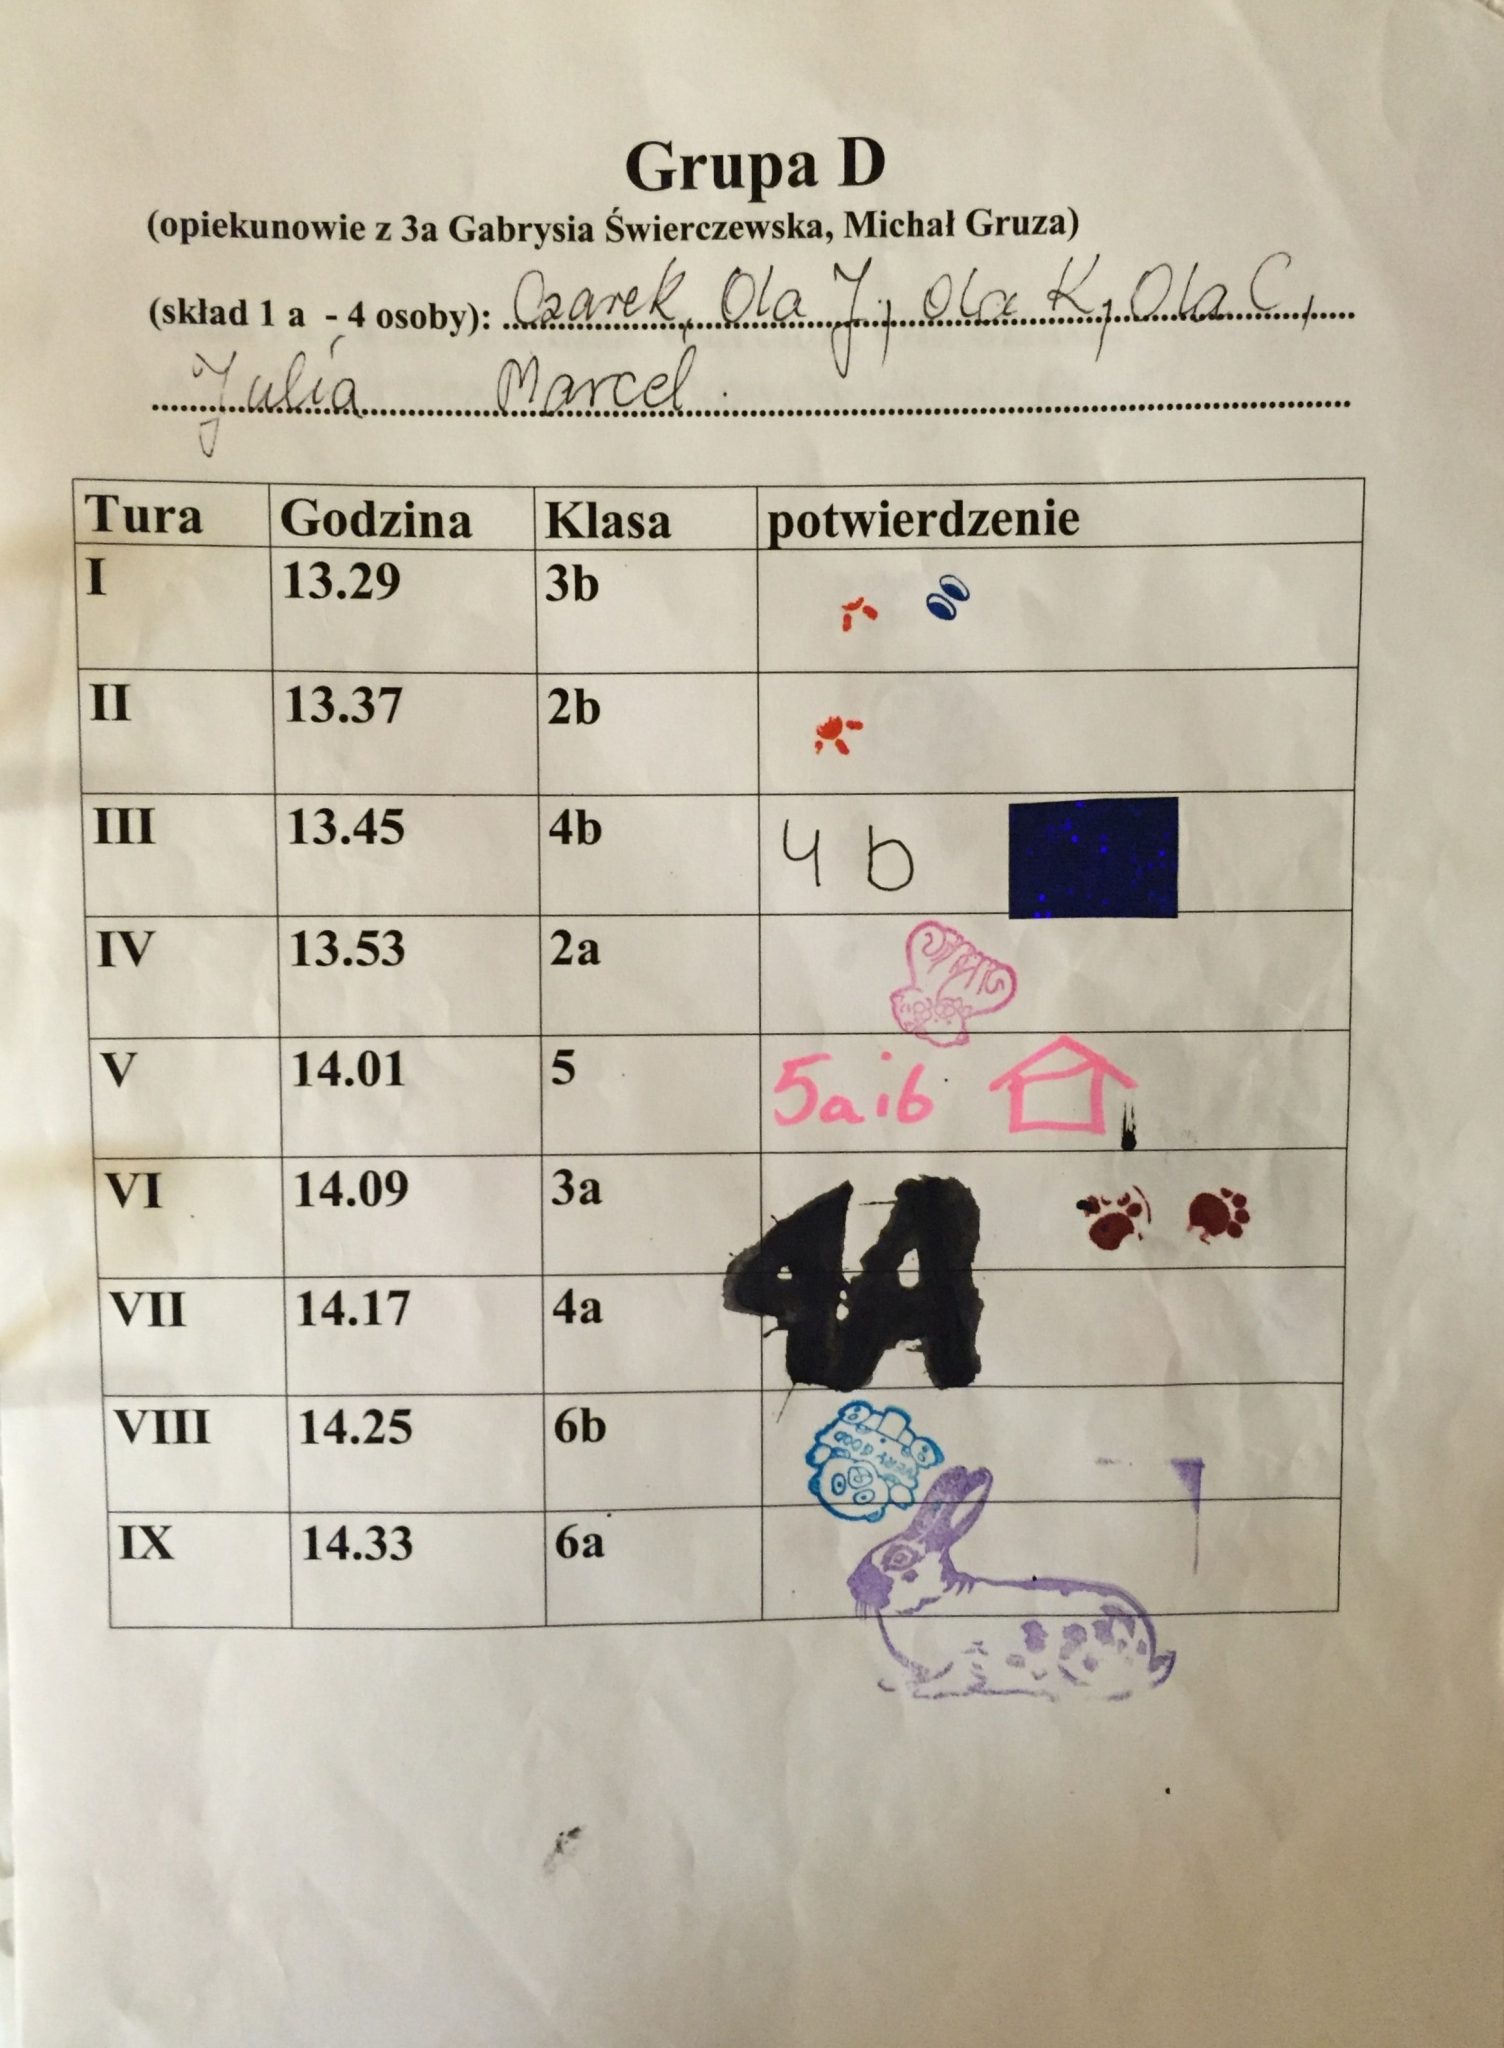 Grupa D
(opiekunowie z 3a Gabrysia Świerczewska, Michał Gruza)
(skład 1 a - 4 osoby): Czarek, Ola J, Ola K, Ola C,
Julia Marcel.
Tura Godzina Klasa potwierdzenie
I 13.29 3b
II 13.37 2b
III 13.45 4b 4 b
IV 13.53 2a
V 14.01 5 5a i b
VI 14.09 3a
VII 14.17 4a 4A
VIII 14.25 6b GOOD
IX 14.33 6a